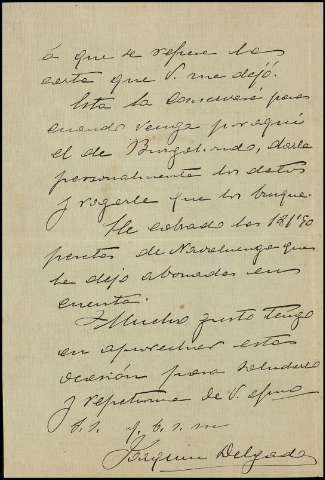 á que se refiere la
carta que V. me dejó.
Esta la conservaré para
cuando venga por aquí
el de Burgohondo, darle
personalmente los datos
y rogarle que los busque.
He cobrado las 181'90
pesetas de Navaluenga que
le dejo abonadas en
cuenta.
Mucho gusto tengo
en aprovechar esta
ocasión para saludarle
y repetirme de V. afmo
s. s. q. b. s. m
Joaquin Delgado